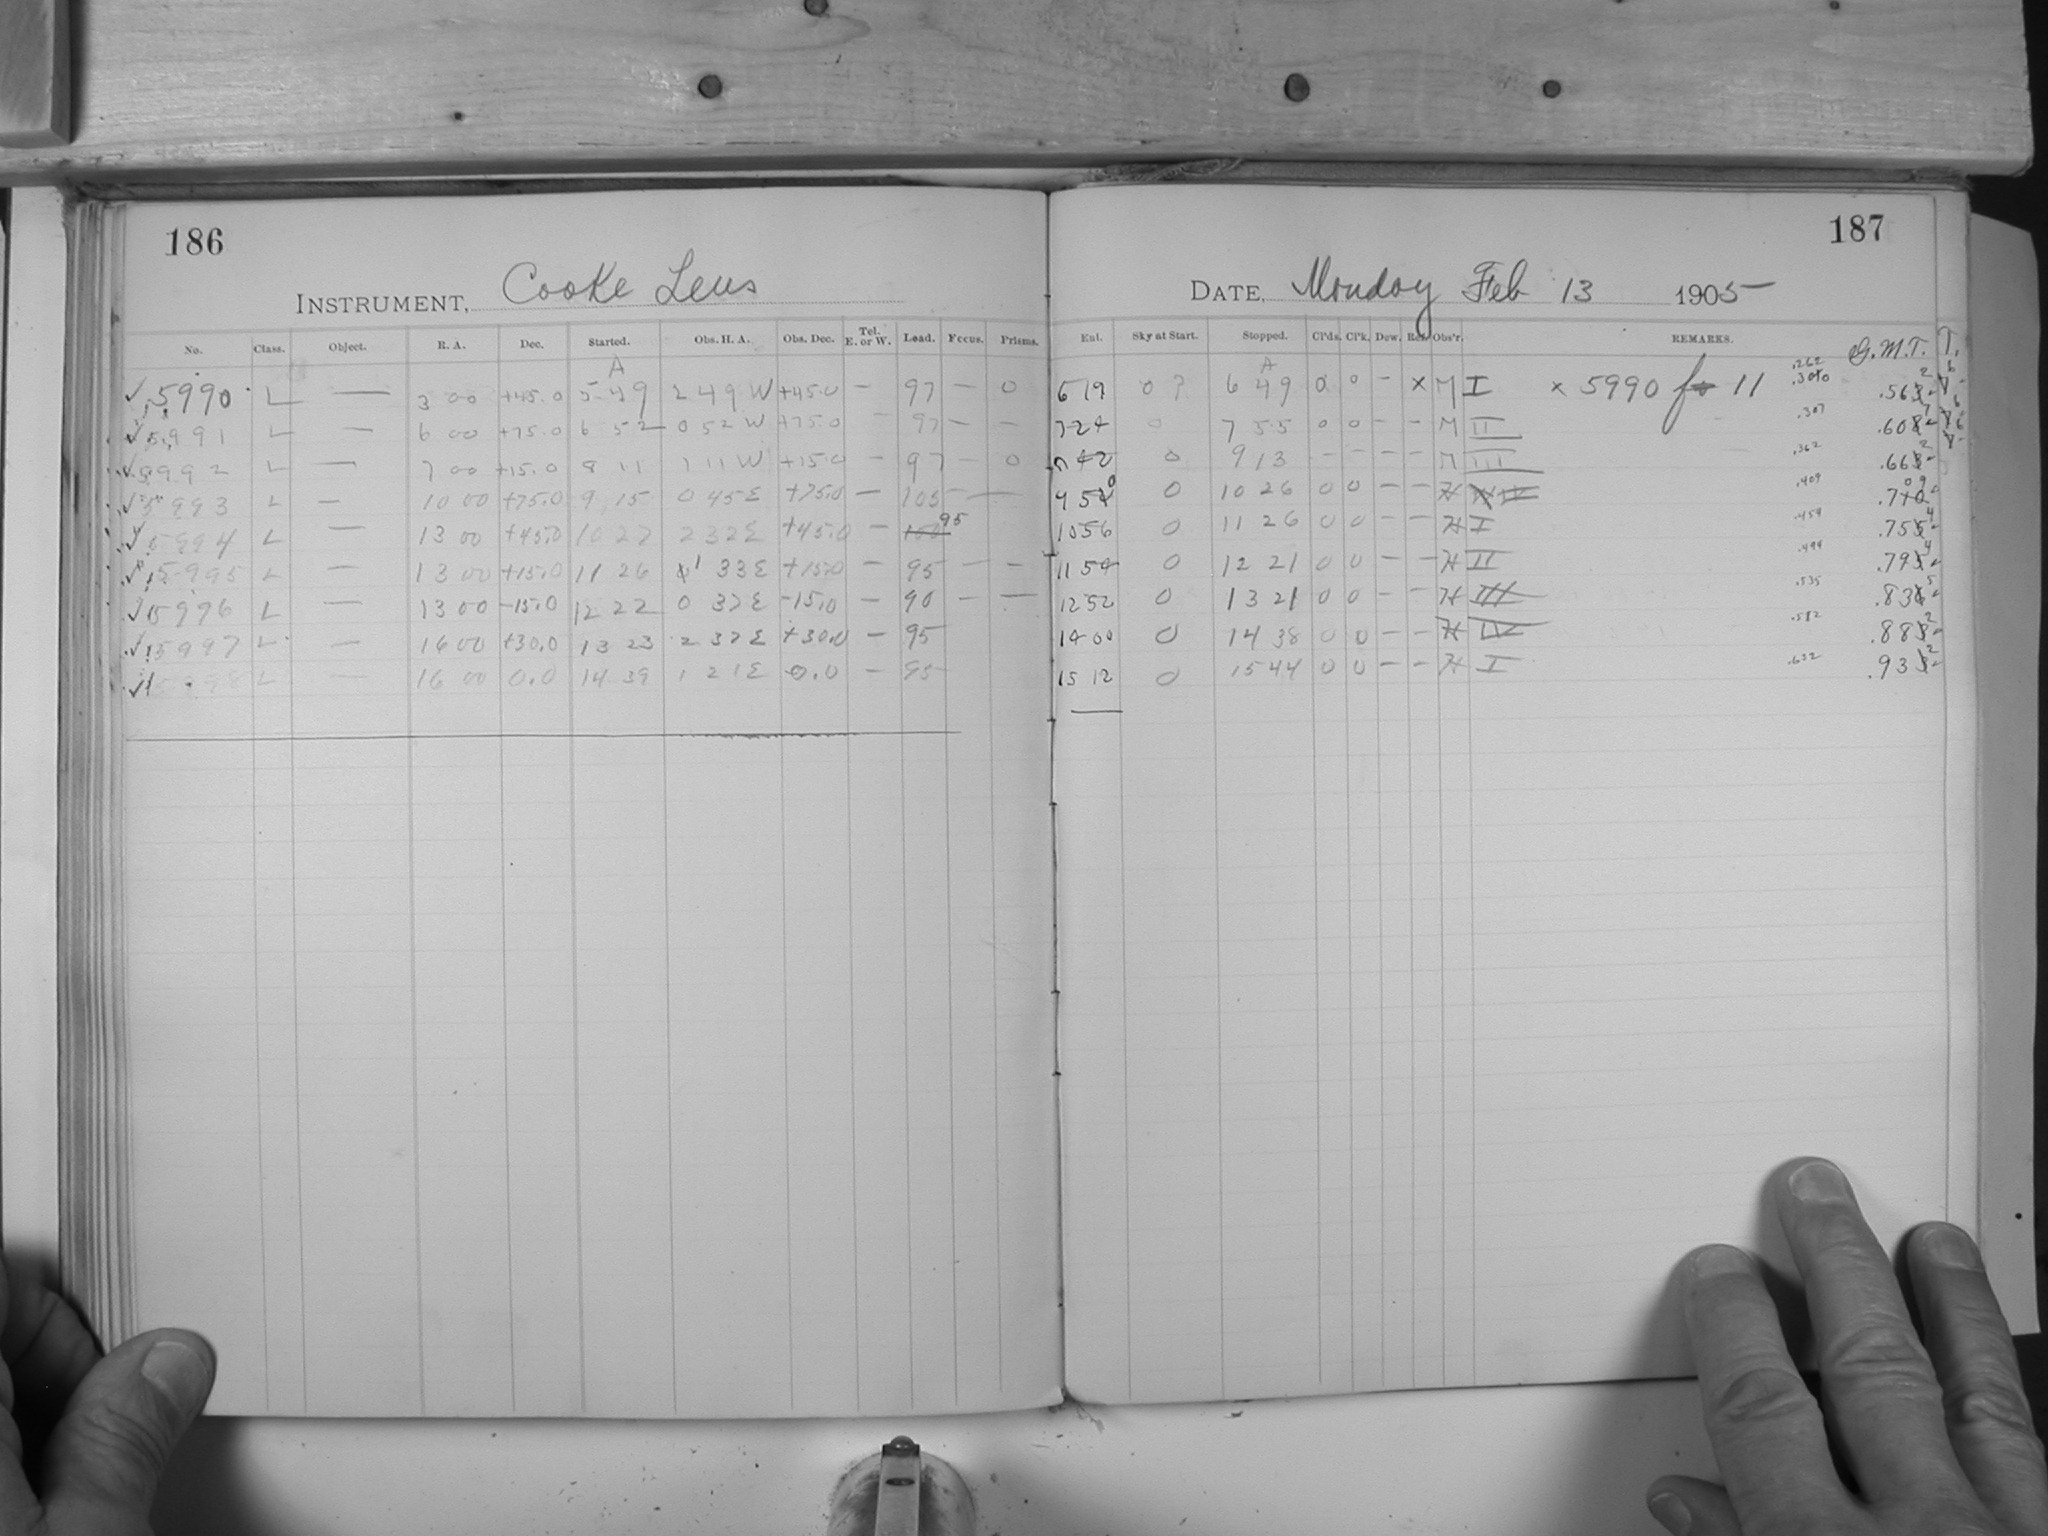 186
INSTRUMENT, Cooke Lens
No. Class. Object. R. A. Dec. Started. Obs. H. A. Obs. Dec. Tel. E. or W. Load. Focus. Prisms.
A
5990 L — 3 00 +45.0 5 49 2 49 W +45.0 — 97 — 0
5991 L — 6 00 +75.0 6 52 0 52 W +75.0 — 97 — —
5992 L — 7 00 +15.0 8 11 1 11 W +15.0 — 97 — 0
5993 L — 10 00 +75.0 9 15 0 45 E +75.0 — 105 — —
5994 L — 13 00 +45.0 10 27 2 32 E +45.0 — 100 95
5995 L — 13 00 +15.0 11 26 1 33 E +15.0 — 95 — —
5996 L — 13 00 -15.0 12 22 0 37 E -15.0 — 90 — —
5997 L — 16 00 +30.0 13 23 2 37 E +30.0 — 95
5998 L — 16 00 0.0 14 39 1 21 E 0.0 — 95
187
DATE, Monday Feb 13 1905
Ent. Sky at Start. Stopped. Cl'ds. Cl'k. Dew. Ref. Obs'r. REMARKS. G.M.T. T.
A
6 19 0 ? 6 49 0 0 — × M I × 5990 for 11 .262 .562
7 24 0 7 55 0 0 — — M II .307 .607
8 42 0 9 13 — — — — M III .362 .662
9 50 0 10 26 0 0 — — H IV .409 .709
10 56 0 11 26 0 0 — — H I .454 .754
11 54 0 12 21 0 0 — — H II .494 .794
12 52 0 13 21 0 0 — — H III .535 .835
14 00 0 14 38 0 0 — — H IV .582 .882
15 12 0 15 44 0 0 — — H I .632 .932